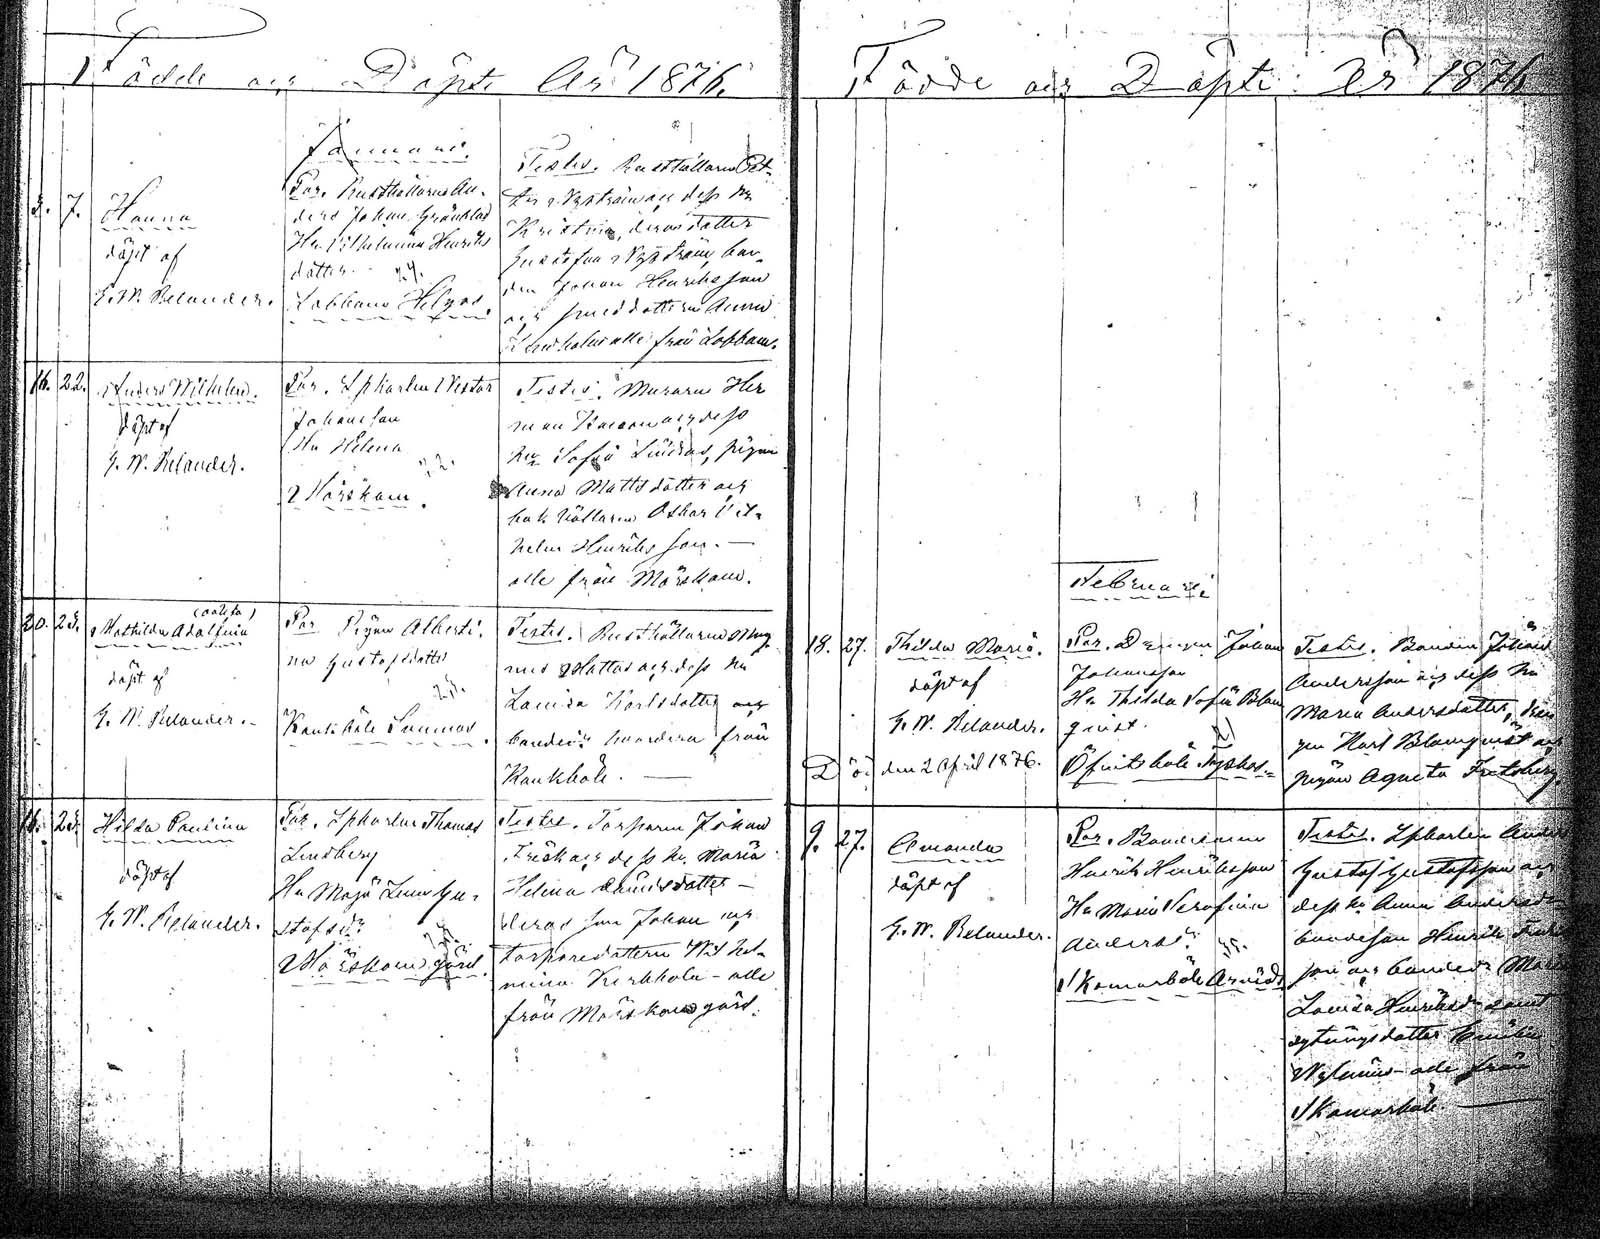 Födde och Döpte År 1876.
Januari.
3. 7. Hanna
döpt af
G. W. Relander.
Par. Rusthållaren An-
ders Johan Grönblad
Hu Vilhelmina Henriks
dotter.
Labbom Helgas
Testes. Rusthållaren Pet-
ter Nyström och dess hu
Kristina, deras dotter
Gustafva Nyström, bon-
den Johan Henriksson
och smeddottern Anna
alle från Labbom.
16. 22. Anders Wilhelm.
döpt af
G. W. Relander.
Par. Spkarlen Viktor
Johansson
Hu Helena
Mörskom.
Testes. Muraren Her
man och dess
hu Sofia Lindros, pigan
Anna Mattsdotter och
bak hållaren Oskar Vil-
helm Henriksson. —
alle från Mörskom.
20. 23. Mathilda Adolfina
(oäkta)
döpt af
G. W. Relander. –
Par Pigan Alberti-
na Gustafsdotter
23.
Kankböle Sunnas
Testes. Rusthållaren Mag-
nus och dess hu
Lovisa Karlsdotter och
från
Kankböle. —
16. 23. Hilda Paulina
döpt af
G. W. Relander.
Par. Spkarlen Thomas
Lindberg
Hu Maja Lena Gu-
stafsdr
Mörskom gård.
Testes. Torparen Johan
Frisk och dess hu Maria
Helena Davidsdotter —
deras son Johan och
torparedottern Wilhel-
mina Kirkhola – alle
från Mörskom gård.
Födde och Döpte År 1876
Februari.
18. 27. Thilda Maria.
döpt af
G. W. Relander.
Dö. den 2 April 1876.
Par. Drengen Johan
Johansson
Hu Thilda Sofia Blom
qvist.
Öfvitsböle Tyskas
Testes. Bonden Johan
Andersson och dess hu
Maria Andersdotter, drän
gen Karl Blomqvist och
pigan Agneta
9. 27. Amanda
döpt af
G. W. Relander.
Par. Bondesonen
Henrik Henriksson
Hu Maria Serafina
Andersdr
Skomarböle Arvids
Testes. Spkarlen Anders
Gustaf Gustafsson och
dess hu Anna Andersdr
bondeson Henrik
son och bondedr Maria
Lovisa Henriksdr samt
sytningsdotter
alle från
Skomarböle. —